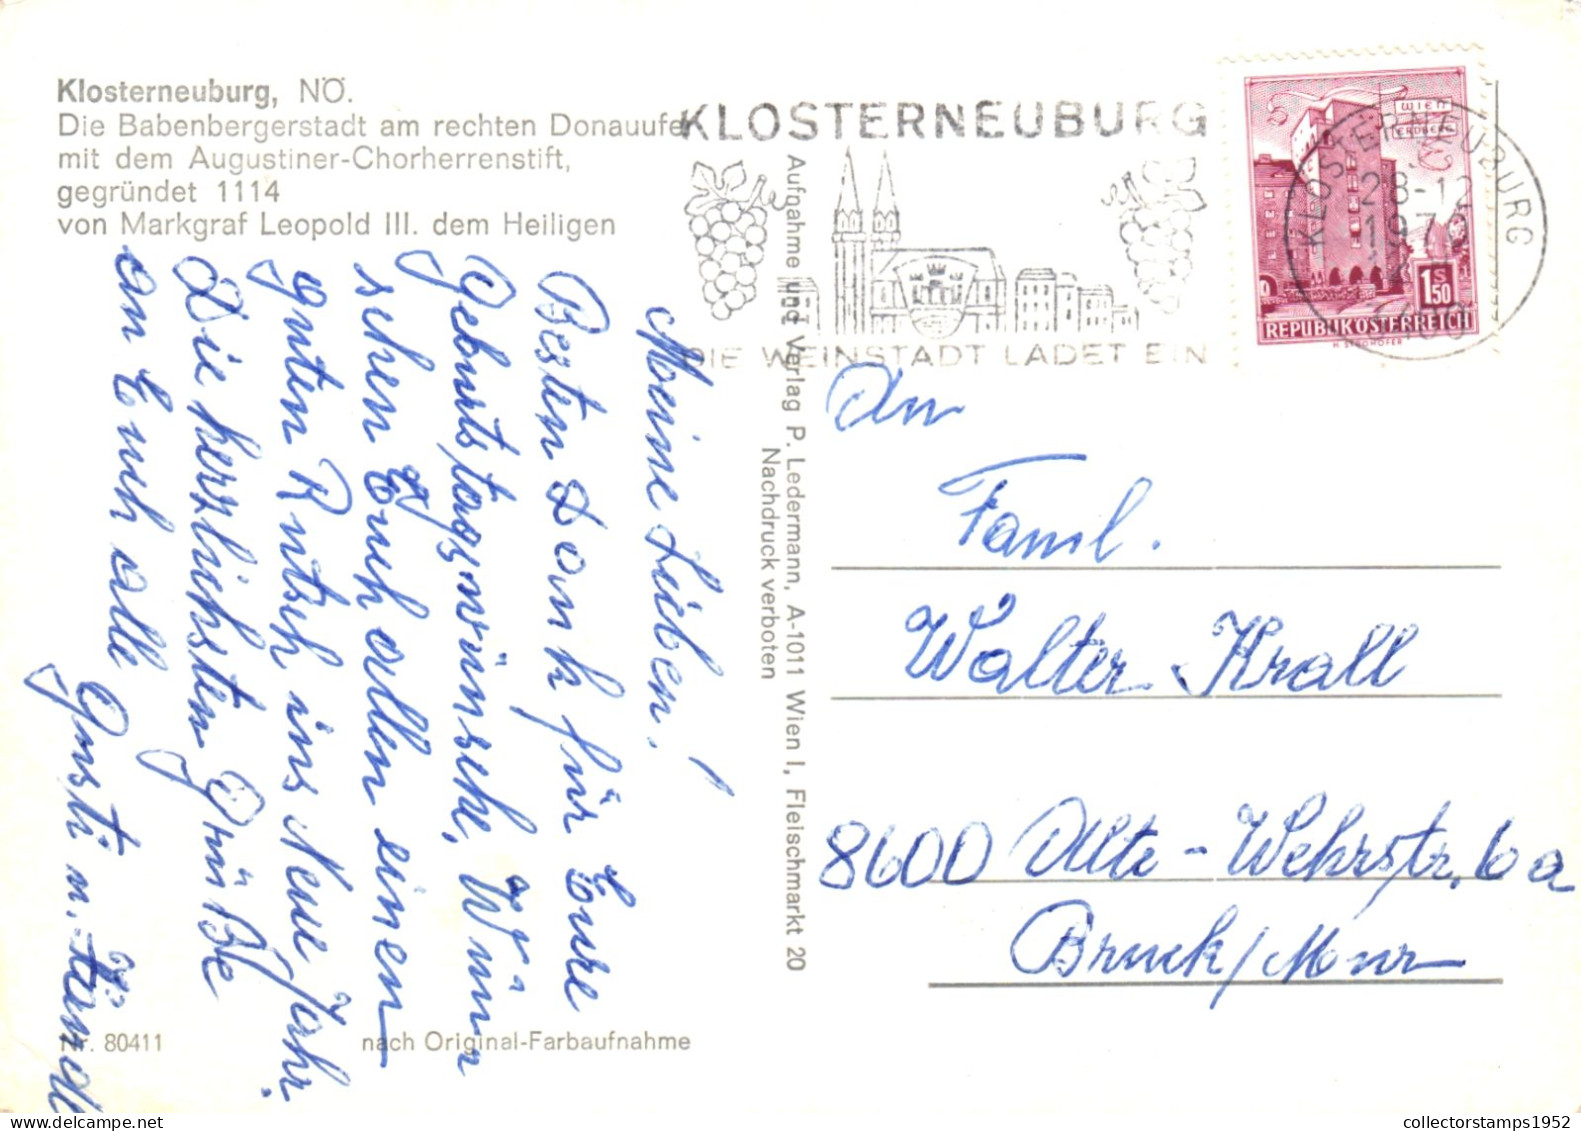 Klosterneuburg, NÖ.
Die Babenbergerstadt am rechten Donauufer
mit dem Augustiner-Chorherrenstift,
gegründet 1114
von Markgraf Leopold III. dem Heiligen
KLOSTERNEUBURG
DIE WEINSTADT LADET EIN
WIEN
ERDBERG
1 S
50
REPUBLIK ÖSTERREICH
KLOSTERNEUBURG
28-12
197
Meine Lieben!
Besten Dank für Eure
Geburtstagswünsche. Wün
schen Euch allen einen
guten Rutsch ins Neue Jahr.
Die herzlichsten Grüße
an Euch alle
Gusti u.
Aufnahme und Verlag P. Ledermann, A-1011 Wien I, Fleischmarkt 20
Nachdruck verboten
An
Faml.
Walter Krall
8600 Alte-Wehrstr. 6a
Bruck/Mur
Nr. 80411
nach Original-Farbaufnahme
collectorstamps1952